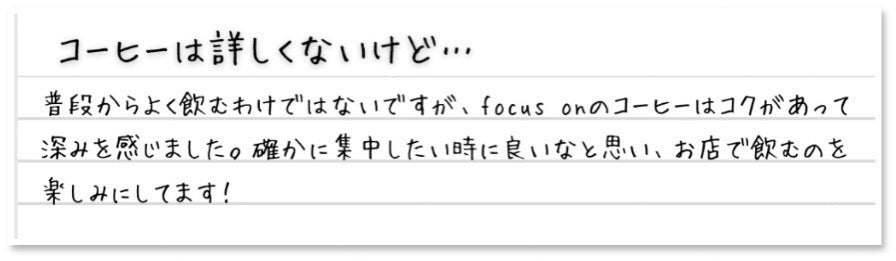 コーヒーは詳しくないけど…
普段からよく飲むわけではないですが、focus onのコーヒーはコクがあって
深みを感じました。確かに集中したい時に良いなと思い、お店で飲むのを
楽しみにしてます！